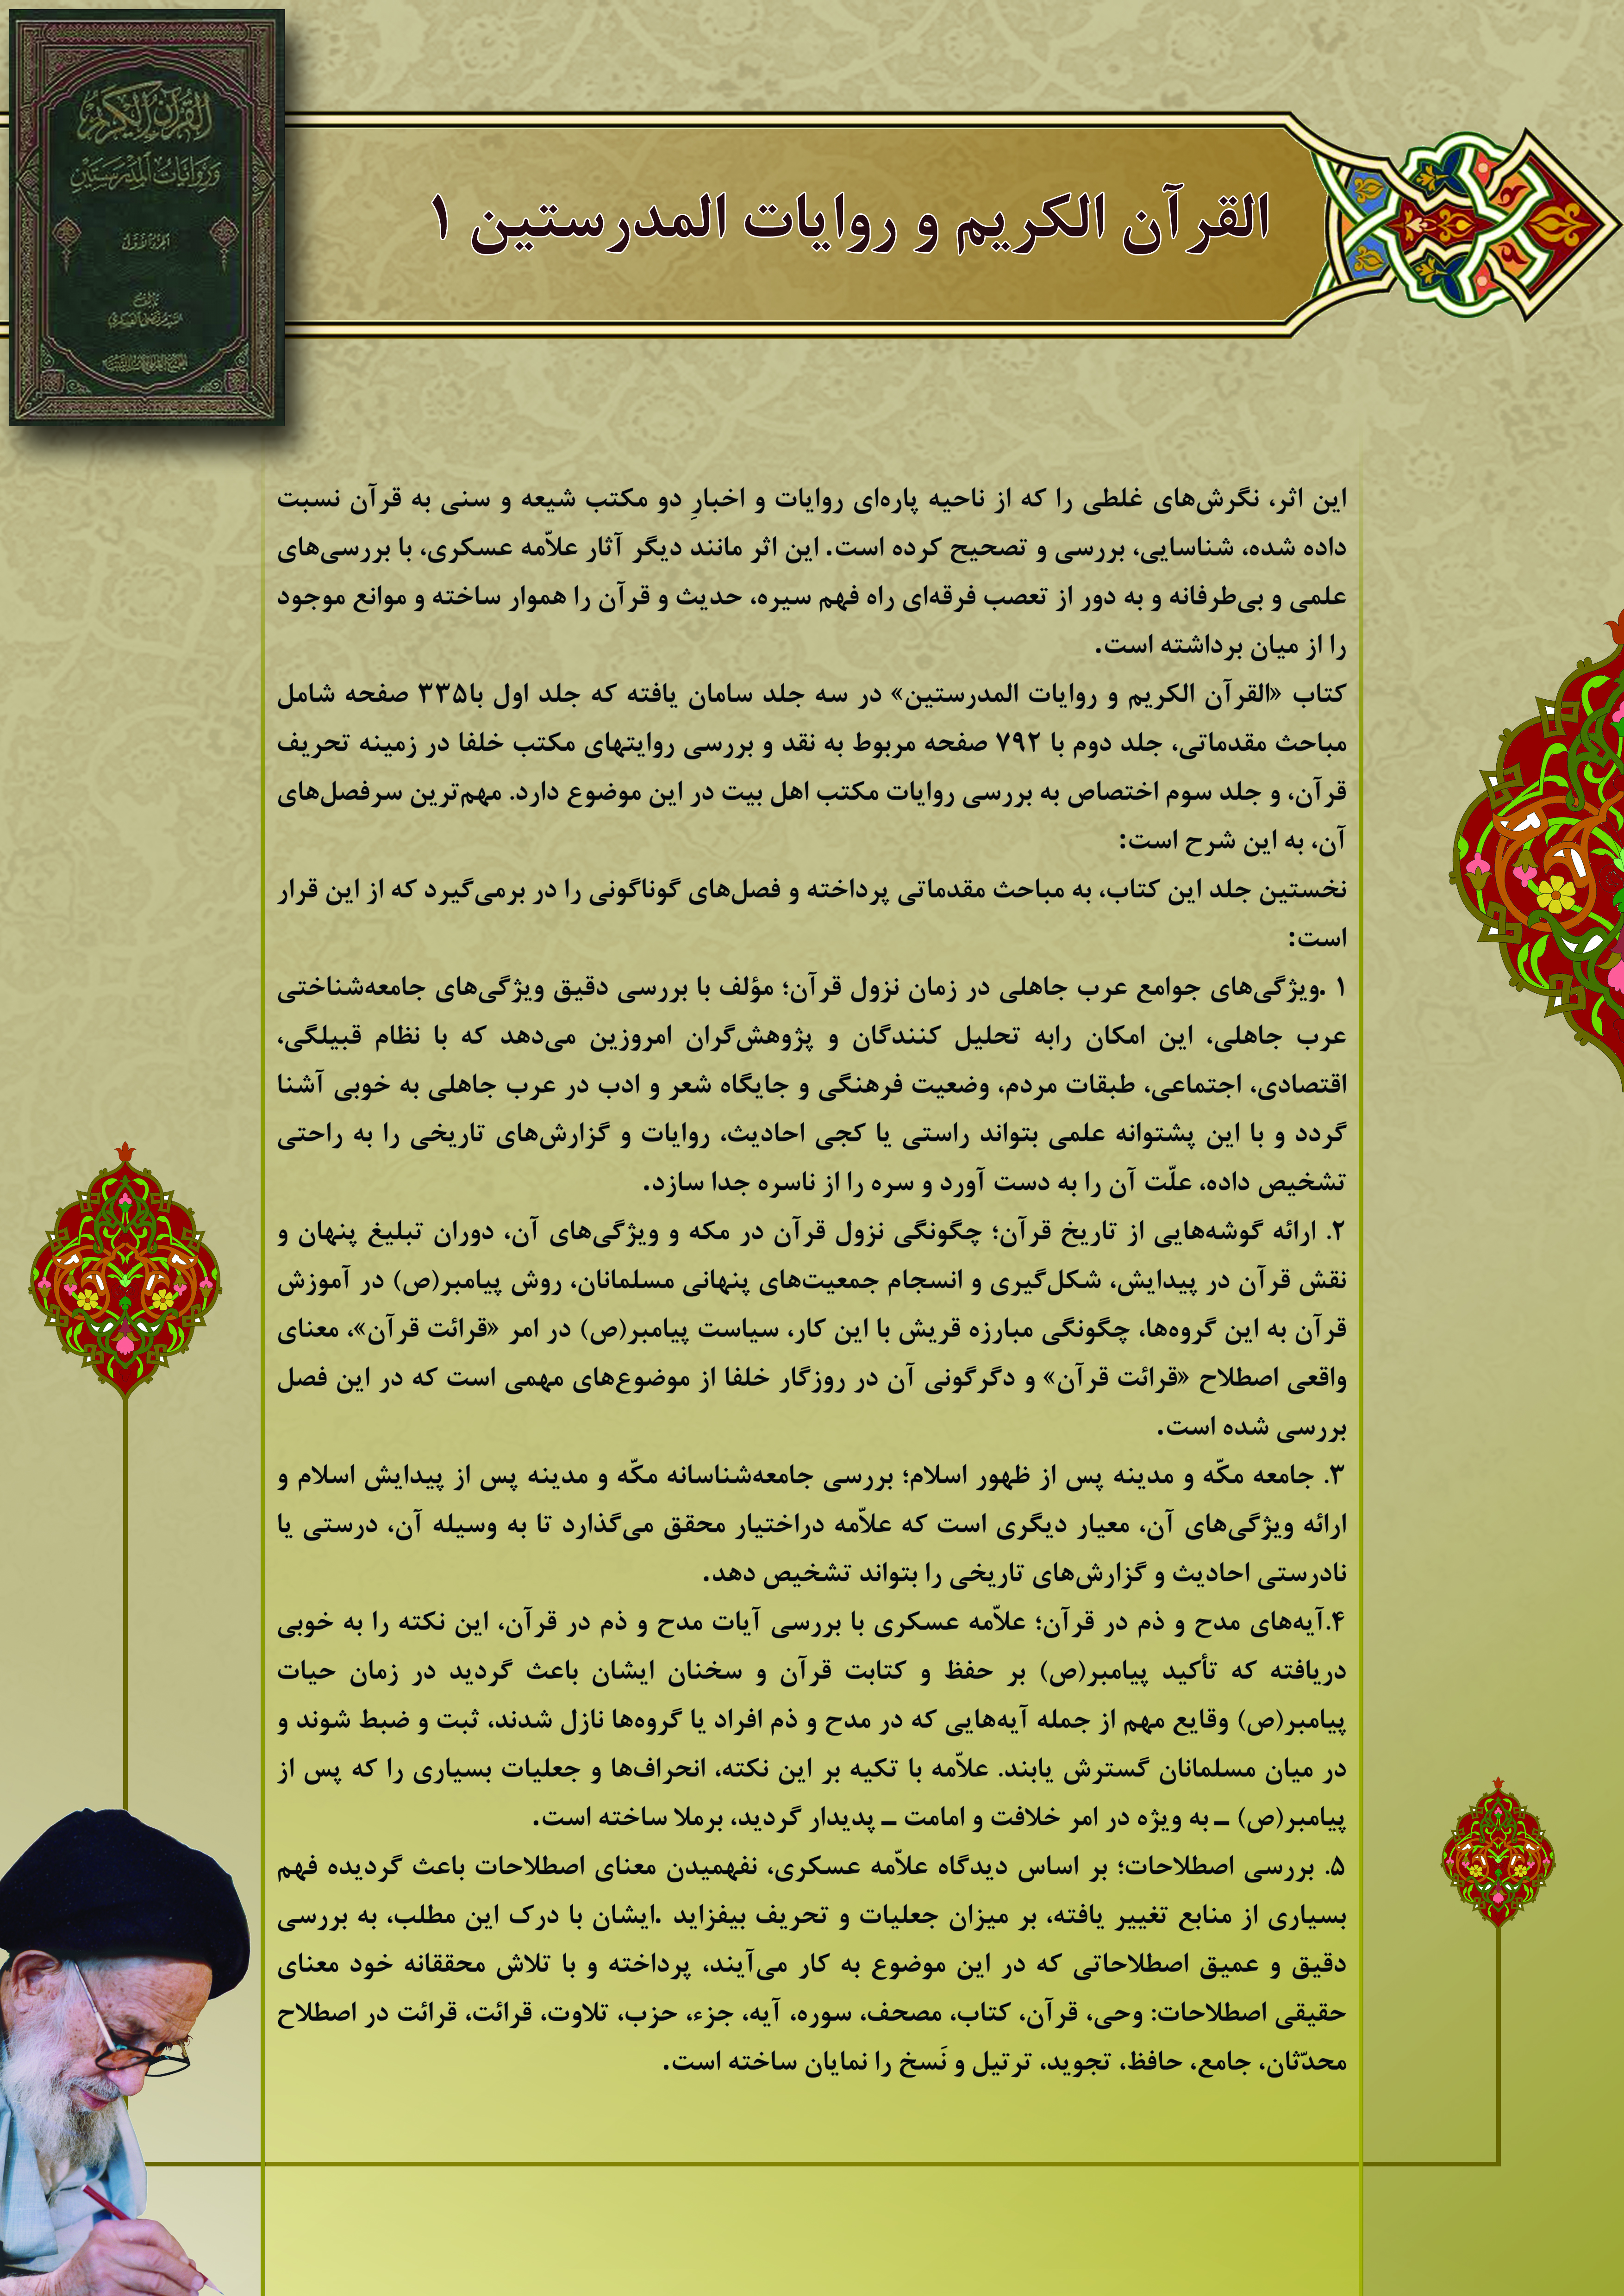 القرآن الكريم
وروايات المدرستين
الجزء الأول
تأليف
السيد مرتضى العسكري
القرآن الکریم و روایات المدرستین ۱
این اثر، نگرش‌های غلطی را که از ناحیه پاره‌ای روایات و اخبارِ دو مکتب شیعه و سنی به قرآن نسبت
داده شده، شناسایی، بررسی و تصحیح کرده است. این اثر مانند دیگر آثار علاّمه عسکری، با بررسی‌های
علمی و بی‌طرفانه و به دور از تعصب فرقه‌ای راه فهم سیره، حدیث و قرآن را هموار ساخته و موانع موجود
را از میان برداشته است.
کتاب «القرآن الکریم و روایات المدرستین» در سه جلد سامان یافته که جلد اول با۳۳۵ صفحه شامل
مباحث مقدماتی، جلد دوم با ۷۹۲ صفحه مربوط به نقد و بررسی روایتهای مکتب خلفا در زمینه تحریف
قرآن، و جلد سوم اختصاص به بررسی روایات مکتب اهل بیت در این موضوع دارد. مهم‌ترین سرفصل‌های
آن، به این شرح است:
نخستین جلد این کتاب، به مباحث مقدماتی پرداخته و فصل‌های گوناگونی را در برمی‌گیرد که از این قرار
است:
۱ .ویژگی‌های جوامع عرب جاهلی در زمان نزول قرآن؛ مؤلف با بررسی دقیق ویژگی‌های جامعه‌شناختی
عرب جاهلی، این امکان رابه تحلیل کنندگان و پژوهش‌گران امروزین می‌دهد که با نظام قبیلگی،
اقتصادی، اجتماعی، طبقات مردم، وضعیت فرهنگی و جایگاه شعر و ادب در عرب جاهلی به خوبی آشنا
گردد و با این پشتوانه علمی بتواند راستی یا کجی احادیث، روایات و گزارش‌های تاریخی را به راحتی
تشخیص داده، علّت آن را به دست آورد و سره را از ناسره جدا سازد.
۲. ارائه گوشه‌هایی از تاریخ قرآن؛ چگونگی نزول قرآن در مکه و ویژگی‌های آن، دوران تبلیغ پنهان و
نقش قرآن در پیدایش، شکل‌گیری و انسجام جمعیت‌های پنهانی مسلمانان، روش پیامبر(ص) در آموزش
قرآن به این گروه‌ها، چگونگی مبارزه قریش با این کار، سیاست پیامبر(ص) در امر «قرائت قرآن»، معنای
واقعی اصطلاح «قرائت قرآن» و دگرگونی آن در روزگار خلفا از موضوع‌های مهمی است که در این فصل
بررسی شده است.
۳. جامعه مکّه و مدینه پس از ظهور اسلام؛ بررسی جامعه‌شناسانه مکّه و مدینه پس از پیدایش اسلام و
ارائه ویژگی‌های آن، معیار دیگری است که علاّمه دراختیار محقق می‌گذارد تا به وسیله آن، درستی یا
نادرستی احادیث و گزارش‌های تاریخی را بتواند تشخیص دهد.
۴.آیه‌های مدح و ذم در قرآن؛ علاّمه عسکری با بررسی آیات مدح و ذم در قرآن، این نکته را به خوبی
دریافته که تأکید پیامبر(ص) بر حفظ و کتابت قرآن و سخنان ایشان باعث گردید در زمان حیات
پیامبر(ص) وقایع مهم از جمله آیه‌هایی که در مدح و ذم افراد یا گروه‌ها نازل شدند، ثبت و ضبط شوند و
در میان مسلمانان گسترش یابند. علاّمه با تکیه بر این نکته، انحراف‌ها و جعلیات بسیاری را که پس از
پیامبر(ص) ـ به ویژه در امر خلافت و امامت ـ پدیدار گردید، برملا ساخته است.
۵. بررسی اصطلاحات؛ بر اساس دیدگاه علاّمه عسکری، نفهمیدن معنای اصطلاحات باعث گردیده فهم
بسیاری از منابع تغییر یافته، بر میزان جعلیات و تحریف بیفزاید .ایشان با درک این مطلب، به بررسی
دقیق و عمیق اصطلاحاتی که در این موضوع به کار می‌آیند، پرداخته و با تلاش محققانه خود معنای
حقیقی اصطلاحات: وحی، قرآن، کتاب، مصحف، سوره، آیه، جزء، حزب، تلاوت، قرائت، قرائت در اصطلاح
محدّثان، جامع، حافظ، تجوید، ترتیل و نَسخ را نمایان ساخته است.